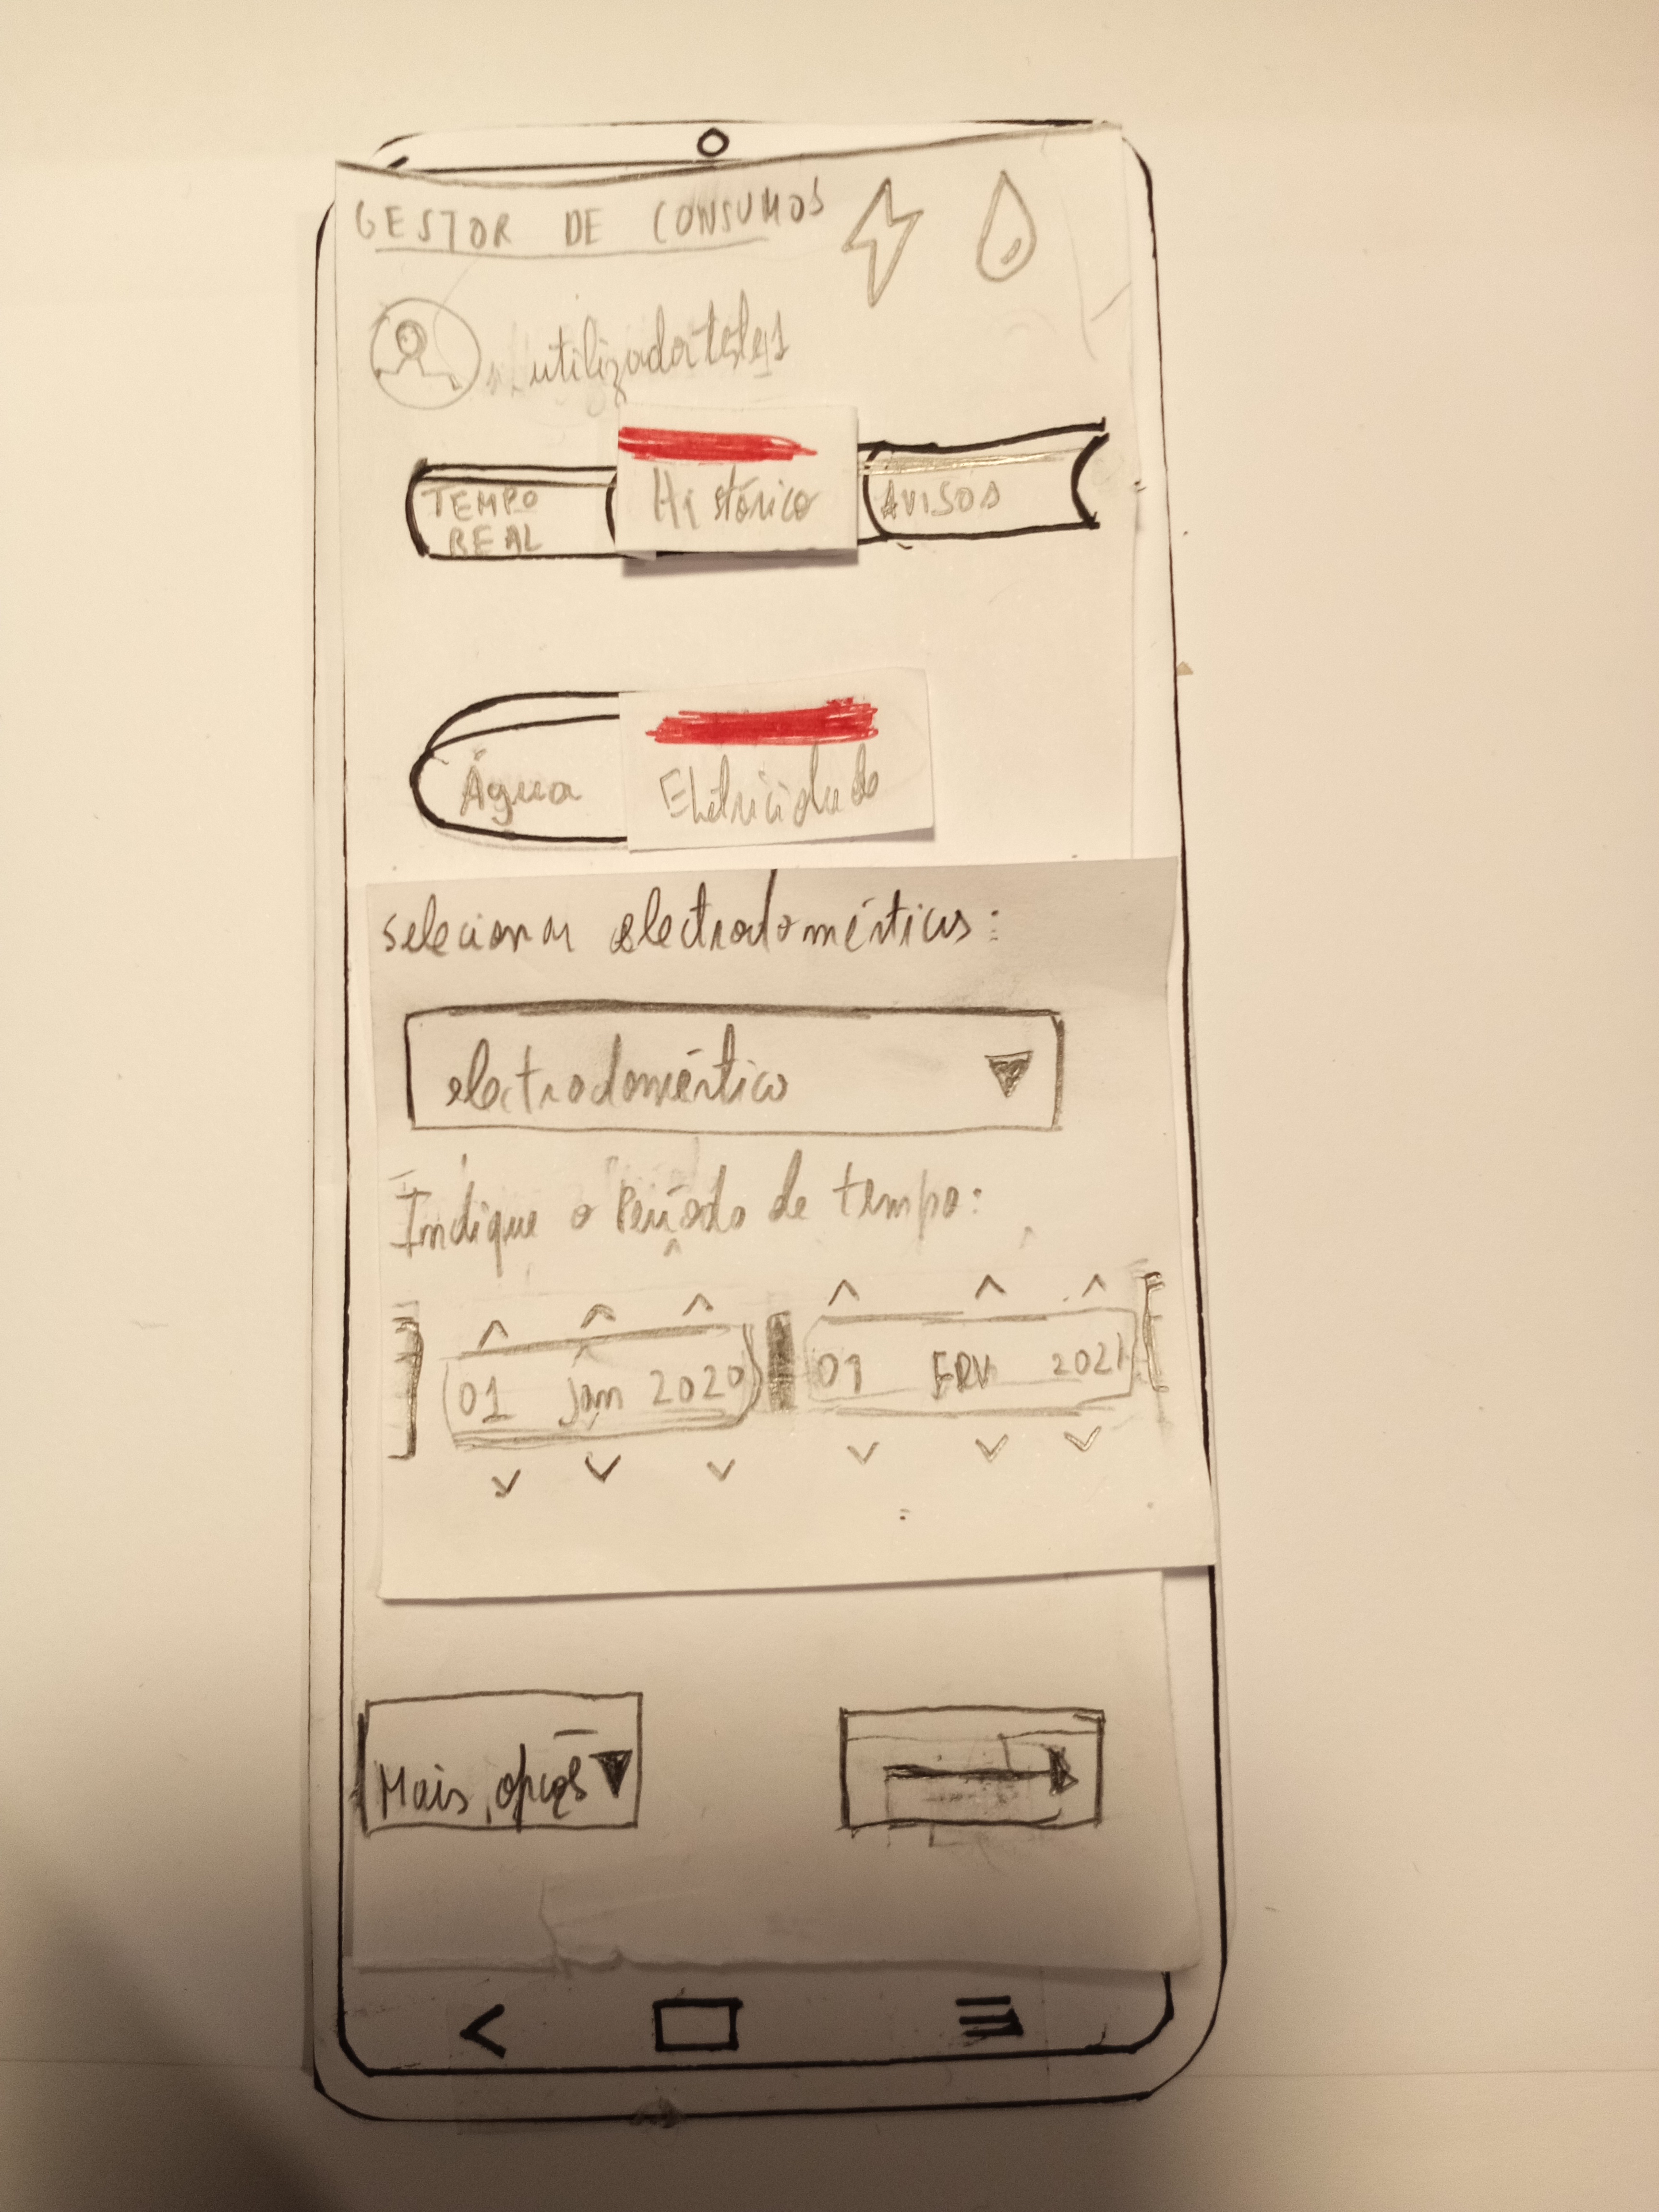 GESTOR DE CONSUMOS
utilizadorteste1
TEMPO REAL
Histórico
AVISOS
Água
Eletricidade
selecionar electrodomésticos:
electrodoméstico
Indique o Período de tempo:
01 Jan 2020
01 FEV 2021
Mais opções